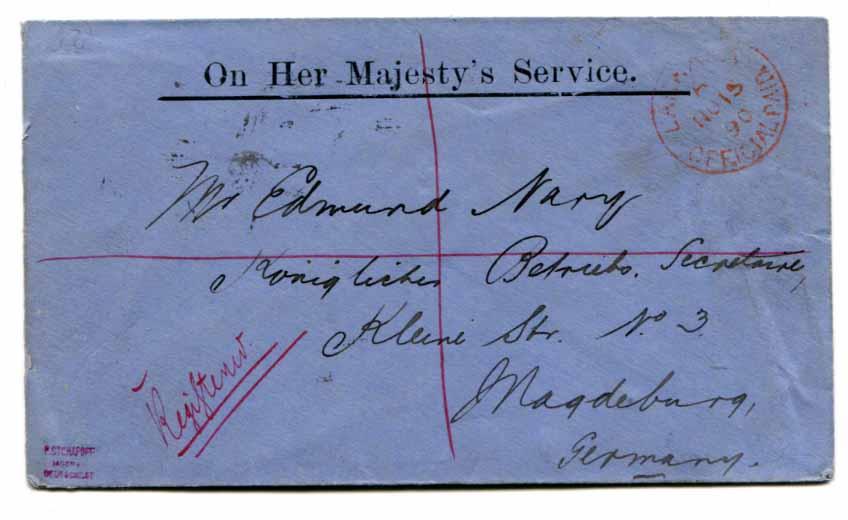 On Her Majesty's Service.
OFFICIAL PAID
AU 18
90
Mr Edmund Nary
Königlicher Betriebs. Secretaire,
Kleine Str. No 3
Magdeburg,
Germany.
Registered.